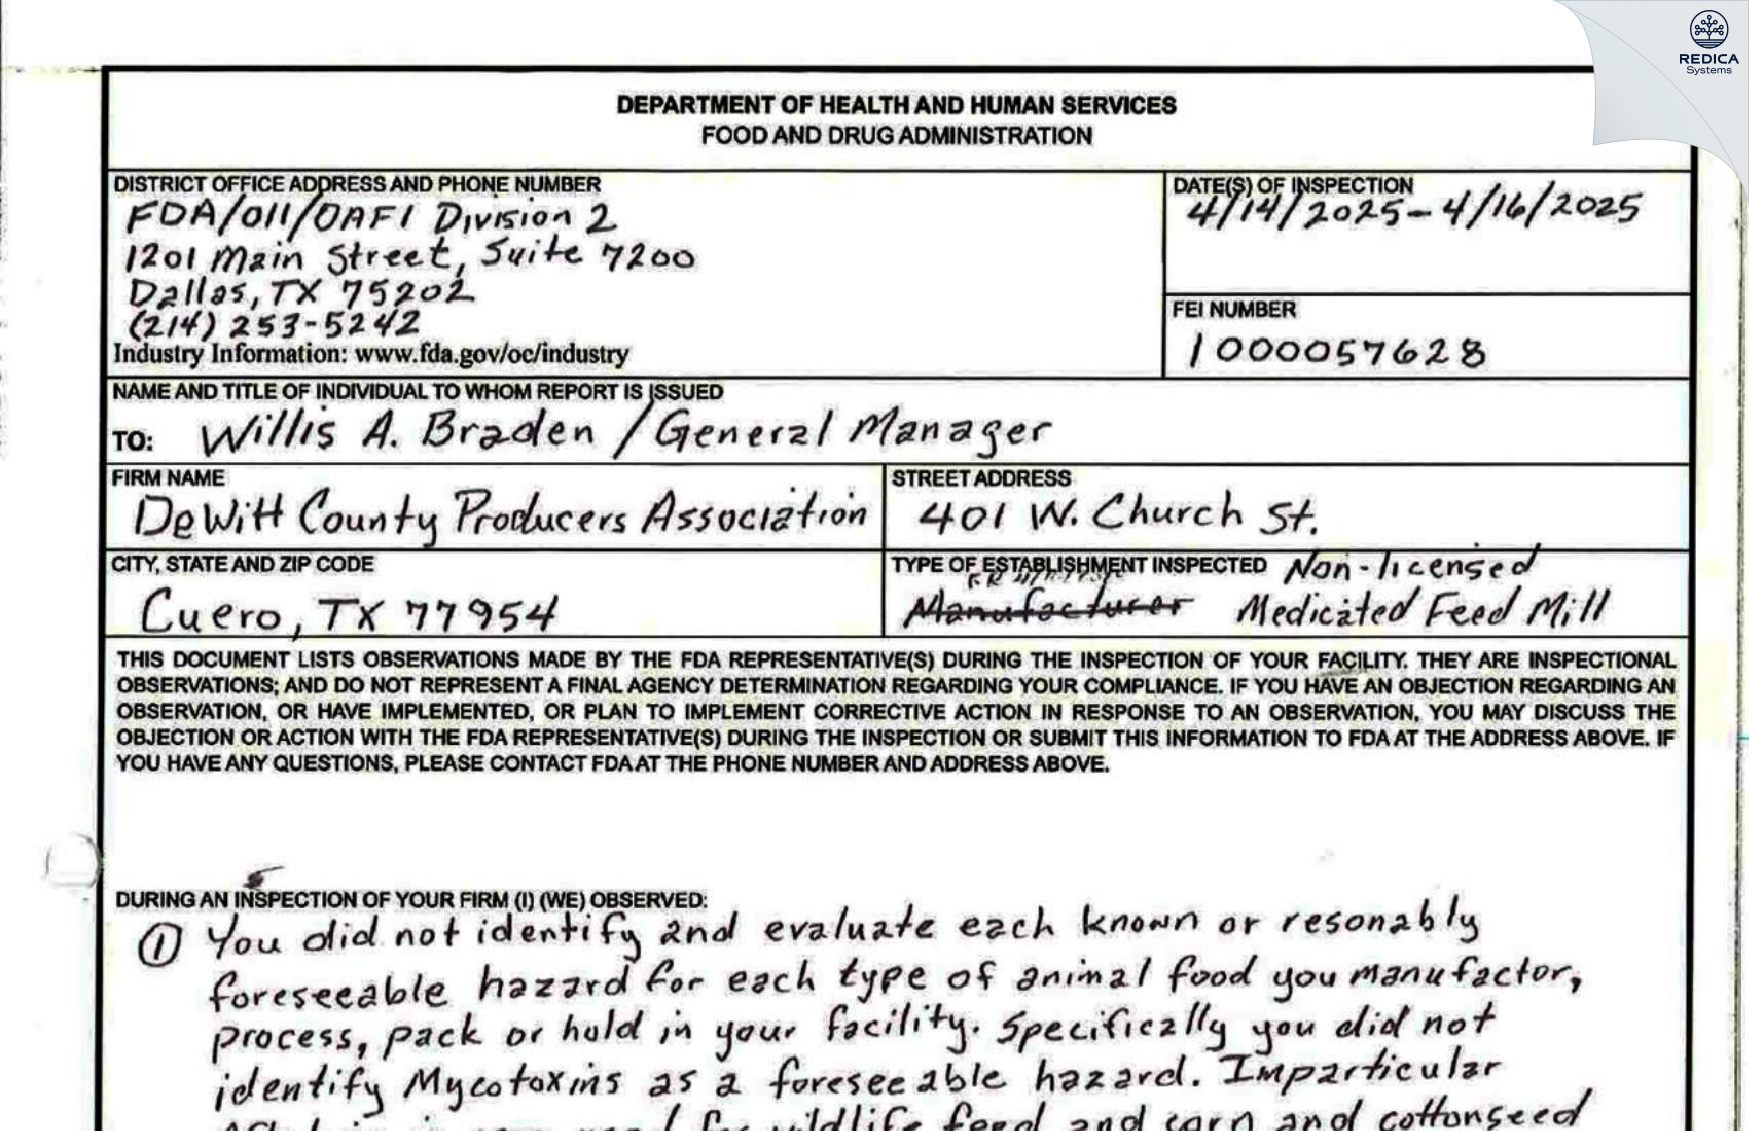 REDICA
Systems
DEPARTMENT OF HEALTH AND HUMAN SERVICES
FOOD AND DRUG ADMINISTRATION
DISTRICT OFFICE ADDRESS AND PHONE NUMBER
FDA/OII/OAFI Division 2
1201 Main Street, Suite 7200
Dallas, TX 75202
(214) 253-5242
Industry Information: www.fda.gov/oc/industry
DATE(S) OF INSPECTION
4/14/2025-4/16/2025
FEI NUMBER
1000057628
NAME AND TITLE OF INDIVIDUAL TO WHOM REPORT IS ISSUED
TO: Willis A. Braden / General Manager
FIRM NAME
DeWitt County Producers Association
STREET ADDRESS
401 W. Church St.
CITY, STATE AND ZIP CODE
Cuero, TX 77954
TYPE OF ESTABLISHMENT INSPECTED Non-licensed
Manufacturer Medicated Feed Mill
THIS DOCUMENT LISTS OBSERVATIONS MADE BY THE FDA REPRESENTATIVE(S) DURING THE INSPECTION OF YOUR FACILITY. THEY ARE INSPECTIONAL
OBSERVATIONS; AND DO NOT REPRESENT A FINAL AGENCY DETERMINATION REGARDING YOUR COMPLIANCE. IF YOU HAVE AN OBJECTION REGARDING AN
OBSERVATION, OR HAVE IMPLEMENTED, OR PLAN TO IMPLEMENT CORRECTIVE ACTION IN RESPONSE TO AN OBSERVATION, YOU MAY DISCUSS THE
OBJECTION OR ACTION WITH THE FDA REPRESENTATIVE(S) DURING THE INSPECTION OR SUBMIT THIS INFORMATION TO FDA AT THE ADDRESS ABOVE. IF
YOU HAVE ANY QUESTIONS, PLEASE CONTACT FDA AT THE PHONE NUMBER AND ADDRESS ABOVE.
DURING AN INSPECTION OF YOUR FIRM (I) (WE) OBSERVED:
① You did not identify and evaluate each known or resonably
foreseeable hazard for each type of animal food you manufactor,
process, pack or hold in your facility. Specifically you did not
identify Mycotoxins as a foreseeable hazard. Imparticular
wildlife feed and corn and cottonseed